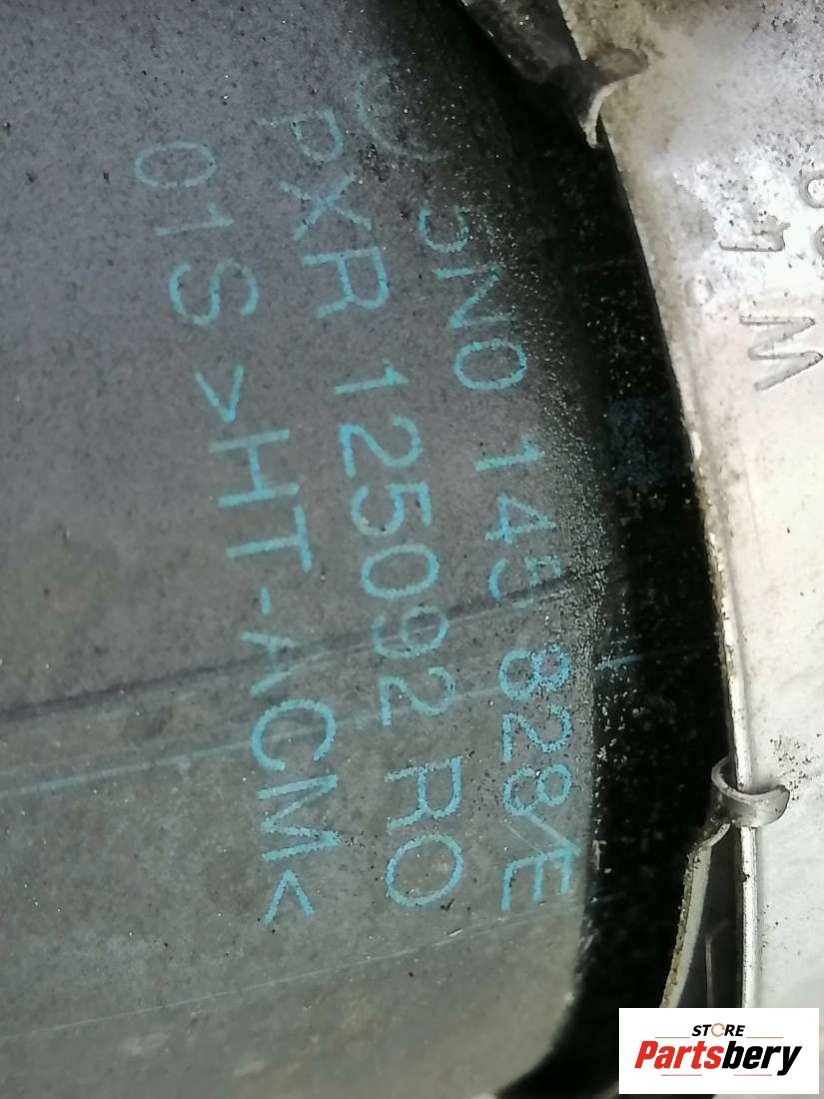 5N0 145 828 E
PXR 125092 RO
01S >HT-ACM<
STORE
Partsbery